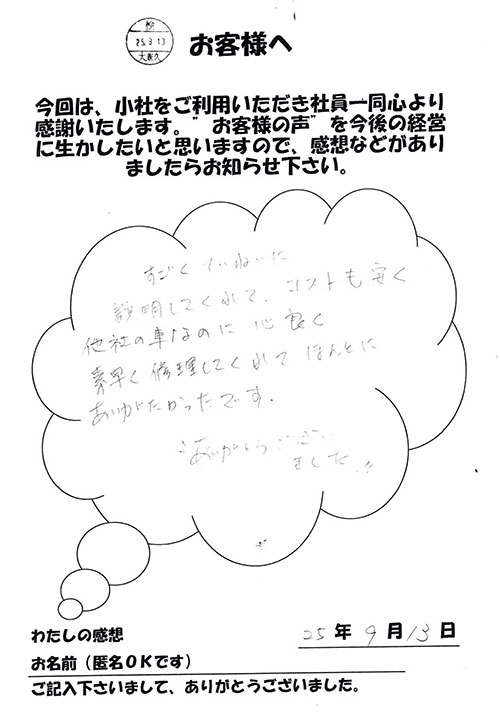 25.9.13
お客様へ
今回は、小社をご利用いただき社員一同心より
感謝いたします。”お客様の声”を今後の経営
に生かしたいと思いますので、感想などがあり
ましたらお知らせ下さい。
すごくていねいに
説明してくれて、コストも安く
他社の車なのに心良く
素早く修理してくれてほんとに
ありがたかったです.
ありがとうござい
ました!!
わたしの感想
25年9月13日
お名前(匿名OKです)
ご記入下さいまして、ありがとうございました。